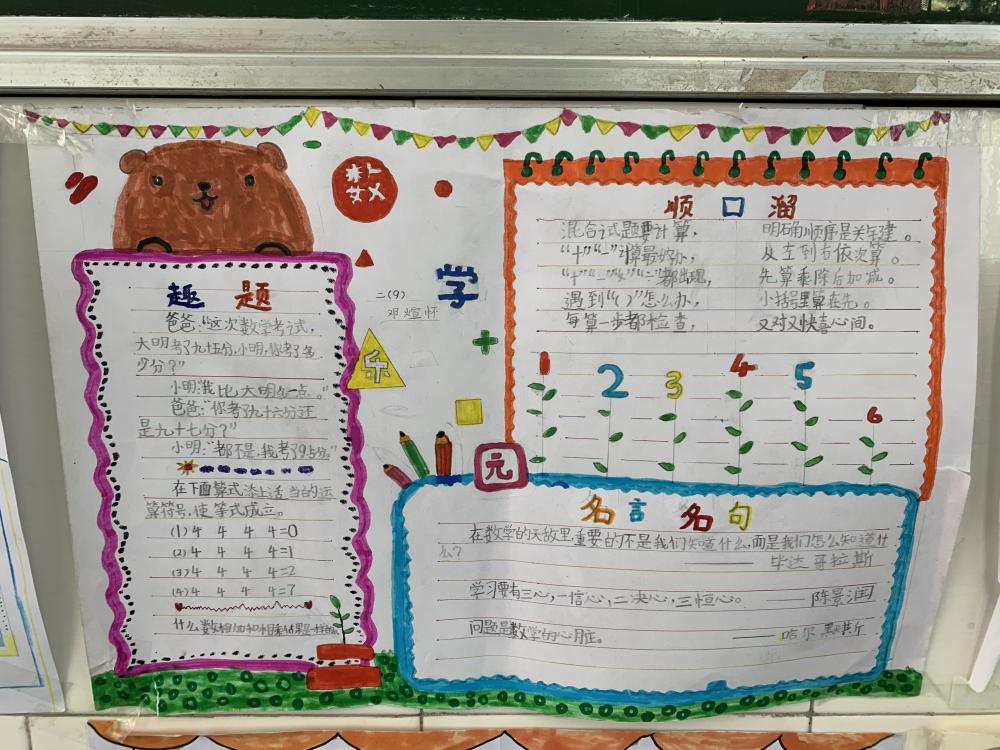 数
学
乐
园
二(9)
邓煊怀
趣 题
爸爸:“这次数学考试,
大明考了九十五分,小明,你考了多
少分?”
小明:“我比大明多一点。”
爸爸:“你考了九十六分还
是九十七分?”
小明:“都不是,我考了9.5分”
在下面算式添上适当的运
算符号,使等式成立。
(1) 4 4 4 4=0
(2) 4 4 4 4=1
(3) 4 4 4 4=2
(4) 4 4 4 4=7
什么数相加和相乘结果是一样的
顺 口 溜
混合试题要计算, 明确顺序是关键。
“十”“一”计算最好办, 从左到右依次算。
都出现, 先算乘除后加减。
遇到“()”怎么办, 小括号里算在先。
每算一步都检查, 又对又快喜心间。
1 2 3 4 5 6
名言名句
在数学的天敌里,重要的不是我们知道什么,而是我们怎么知道什
么?
—— 毕达哥拉斯
学习要有三心,一信心,二决心,三恒心。 —— 陈景润
问题是数学的心脏。 —— 哈尔默斯